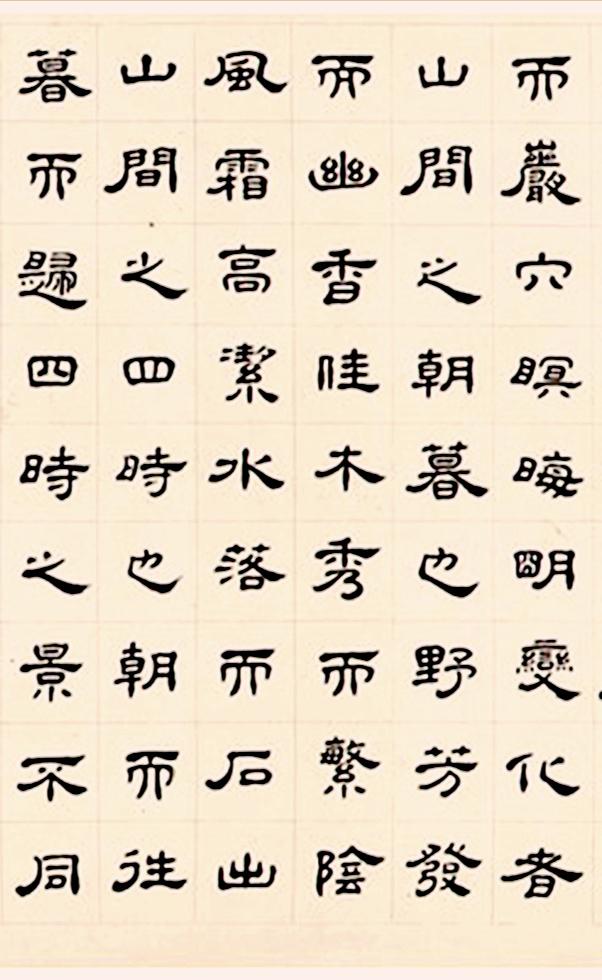 而巖穴暝晦明變化者
山間之朝暮也野芳發
而幽香佳木秀而繁陰
風霜高潔水落而石出
山間之四時也朝而往
暮而歸四時之景不同